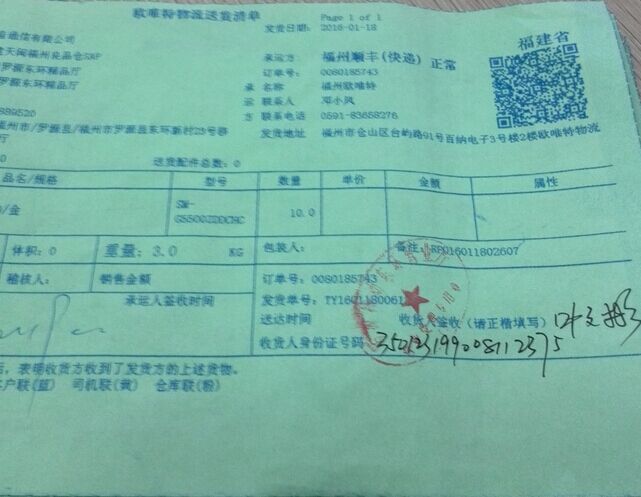 欧唯特物流送货清单
Page 1 of 1
发货日期： 2016-01-18
福建省
通信有限公司
承运方： 福州顺丰(快递) 正常
天闽福州良品仓
罗源东环精品厅
订单号： 0080185743
罗源东环精品厅
承 名称 福州欧唯特
运 联系人 邓小凤
889520
方 联系电话 0591-83658276
福州市/罗源县/福州市罗源县东环新村23号
发货地址 福州市仓山区台屿路91号百纳电子3号楼2楼欧唯特物流
送货配件总数：0
品名/规格 型号 数量 单价 金额 属性
/金 SM-
10.0
体积：0 重量： 3.0 KG 包装人： 备注：RP016011802607
稽核人： 销售金额 订单号： 0080185743
承运人签收时间 发货单号：TY16011800061
送达时间 收货人签收（请正楷填写）
收货人身份证号码 350123199008112375
后，表明收货方收到了发货方的上述货物。
客户联(蓝) 司机联(黄) 仓库联(粉)